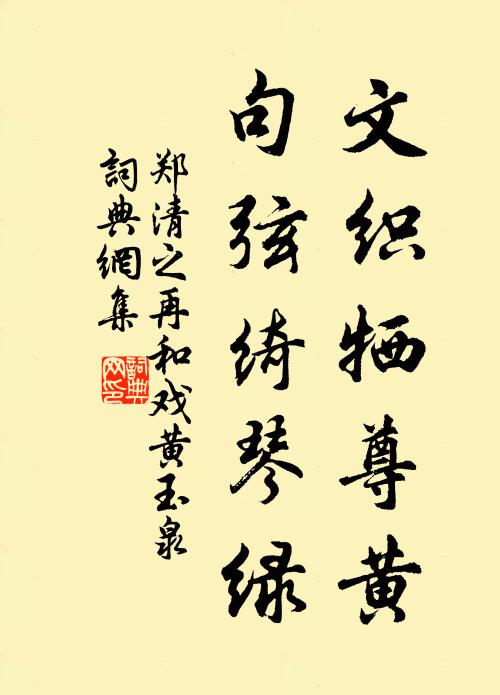 文织牺尊黄
句弦绮琴绿
郑清之再和戏黄玉泉
詞典網集
詞典网印